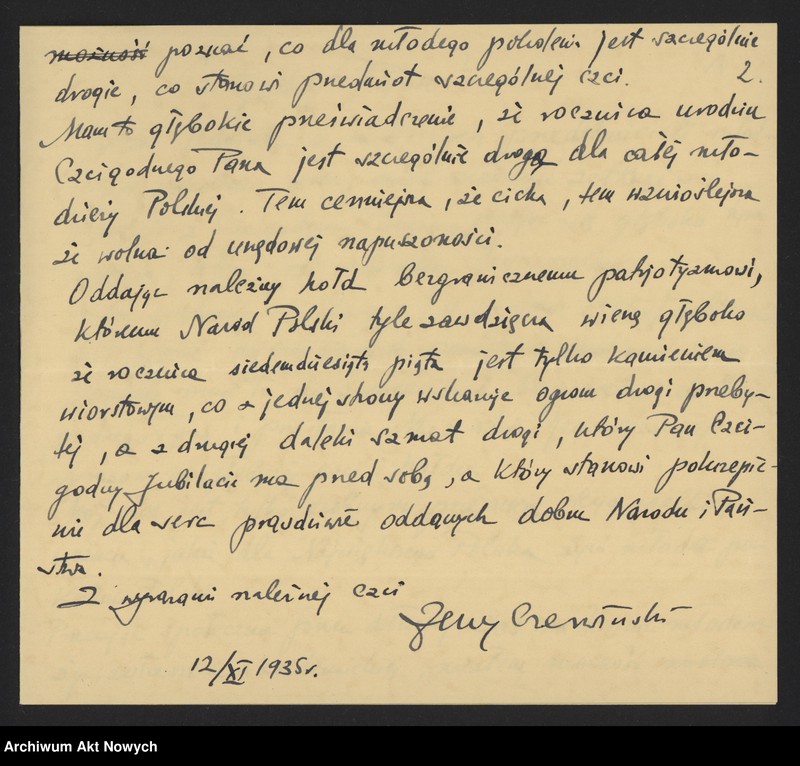 możność poznać, co dla młodego pokolenia jest szczególnie
2.
drogie, co stanowi przedmiot szczególnej czci.
Mam to głębokie przeświadczenie, że rocznica urodzin
Czcigodnego Pana jest szczególnie drogą dla całej mło-
dzieży Polskiej. Tem cenniejsza, że cicha, tem wznioślejsza
że wolna od urzędowej napuszoności.
Oddając należny hołd bezgranicznemu patrjotyzmowi,
któremu Naród Polski tyle zawdzięcza wierzę głęboko
że rocznica siedemdziesiąta piąta jest tylko kamieniem
wiorstowym, co z jednej strony wskazuje ogrom drogi przeby-
tej, a z drugiej daleki szmat drogi, który Pan Czci-
godny Jubilacie ma przed sobą, a który stanowi pokrzepie-
nie dla serc prawdziwie oddanych dobru Narodu i Pań-
stwa.
Z wyrazami należnej czci
Jerzy Czerwiński
12/XI 1935r.
Archiwum Akt Nowych